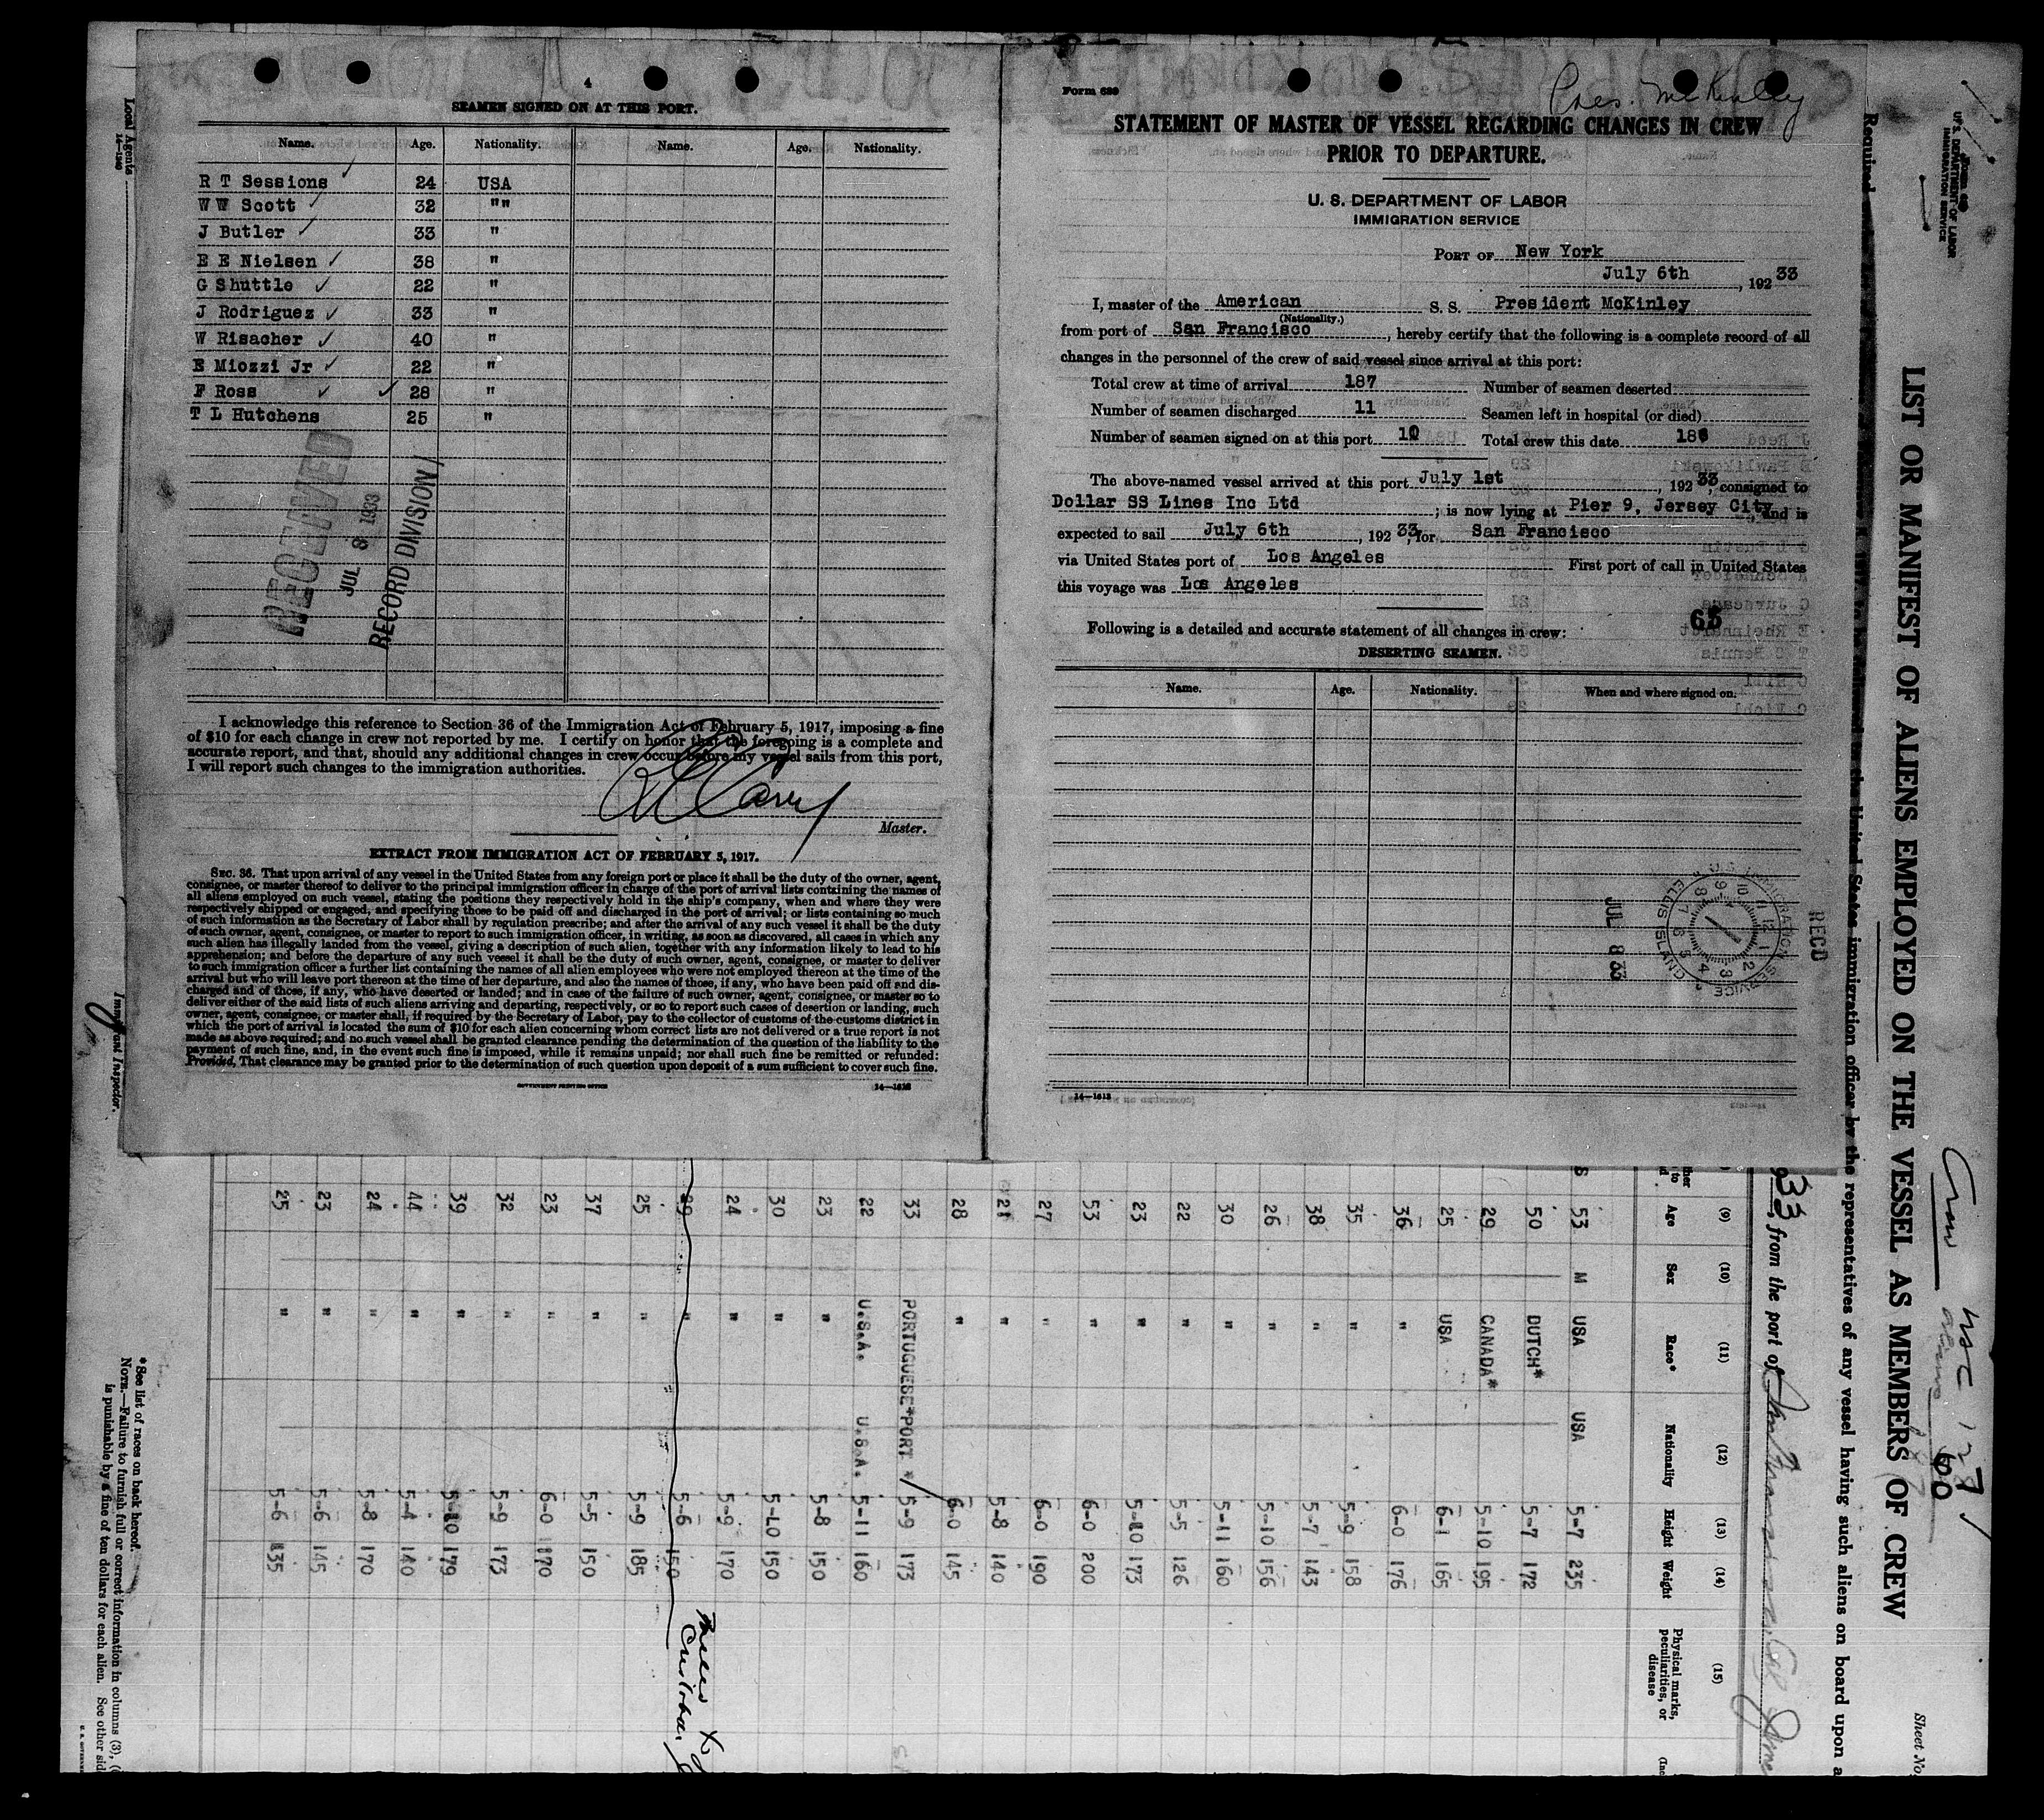 4
SEAMEN SIGNED ON AT THIS PORT.
Name. Age. Nationality. Name. Age. Nationality.
R T Sessions 24 USA
W W Scott 32 " "
J Butler 33 "
E E Nielsen 38 "
G Shuttle 22 "
J Rodriguez 33 "
W Risacher 40 "
E Miozzi Jr 22 "
F Ross 28 "
T L Hutchens 25 "
RECEIVED
JUL 8 1933
RECORD DIVISION
I acknowledge this reference to Section 36 of the Immigration Act of February 5, 1917, imposing a fine
of $10 for each change in crew not reported by me. I certify on honor that the foregoing is a complete and
accurate report, and that, should any additional changes in crew occur before my vessel sails from this port,
I will report such changes to the immigration authorities.
Master.
EXTRACT FROM IMMIGRATION ACT OF FEBRUARY 5, 1917.
SEC. 36. That upon arrival of any vessel in the United States from any foreign port or place it shall be the duty of the owner, agent,
consignee, or master thereof to deliver to the principal immigration officer in charge of the port of arrival lists containing the names of
all aliens employed on such vessel, stating the positions they respectively hold in the ship's company, when and where they were
respectively shipped or engaged, and specifying those to be paid off and discharged in the port of arrival; or lists containing so much
of such information as the Secretary of Labor shall by regulation prescribe; and after the arrival of any such vessel it shall be the duty
of such owner, agent, consignee, or master to report to such immigration officer, in writing, as soon as discovered, all cases in which any
such alien has illegally landed from the vessel, giving a description of such alien, together with any information likely to lead to his
apprehension; and before the departure of any such vessel it shall be the duty of such owner, agent, consignee, or master to deliver
to such immigration officer a further list containing the names of all alien employees who were not employed thereon at the time of the
arrival but who will leave port thereon at the time of her departure, and also the names of those, if any, who have been paid off and dis-
charged and of those, if any, who have deserted or landed; and in case of the failure of such owner, agent, consignee, or master so to
deliver either of the said lists of such aliens arriving and departing, respectively, or so to report such cases of desertion or landing, such
owner, agent, consignee, or master shall, if required by the Secretary of Labor, pay to the collector of customs of the customs district in
which the port of arrival is located the sum of $10 for each alien concerning whom correct lists are not delivered or a true report is not
made as above required; and no such vessel shall be granted clearance pending the determination of the question of the liability to the
payment of such fine, and, in the event such fine is imposed, while it remains unpaid; nor shall such fine be remitted or refunded:
Provided, That clearance may be granted prior to the determination of such question upon deposit of a sum sufficient to cover such fine.
GOVERNMENT PRINTING OFFICE 14—1613
Form 689
Pres. McKinley
STATEMENT OF MASTER OF VESSEL REGARDING CHANGES IN CREW
PRIOR TO DEPARTURE.
U. S. DEPARTMENT OF LABOR
IMMIGRATION SERVICE
PORT OF New York
July 6th, 192 33
I, master of the American S. S. President McKinley
(Nationality.)
from port of San Francisco, hereby certify that the following is a complete record of all
changes in the personnel of the crew of said vessel since arrival at this port:
Total crew at time of arrival 187 Number of seamen deserted
Number of seamen discharged 11 Seamen left in hospital (or died)
Number of seamen signed on at this port 10 Total crew this date 186
The above-named vessel arrived at this port July 1st, 192 33, consigned to
Dollar SS Lines Inc Ltd; is now lying at Pier 9, Jersey City, and is
expected to sail July 6th, 192 33, for San Francisco
via United States port of Los Angeles First port of call in United States
this voyage was Los Angeles
65
Following is a detailed and accurate statement of all changes in crew:
DESERTING SEAMEN.
Name. Age. Nationality. When and where signed on.
RECD
IMMIGRATION SERVICE
ELLIS ISLAND
JUL 8 33
14—1613
Local Agents
14—1240
Immigrant Inspector.
Form 689
U. S. DEPARTMENT OF LABOR
IMMIGRATION SERVICE
Sheet No.
LIST OR MANIFEST OF ALIENS EMPLOYED ON THE VESSEL AS MEMBERS OF CREW
Required
the United States immigration officer by the representatives of any vessel having such aliens on board upon a
33, from the port of San
(9) (10) (11) (12) (13) (14) (15)
Age Sex Race* Nationality Height Weight Physical marks, peculiarities, or disease
53 M USA USA 5-7 235
50 DUTCH* 5-7 172
29 CANADA* 5-10 195
25 USA 6-1 165
36 " 6-0 176
35 " 5-9 158
38 " 5-7 143
26 " 5-10 156
30 " 5-11 160
22 " 5-5 126
23 " 5-10 173
53 " 6-0 200
27 " 6-0 190
21 " 5-8 140
28 " 6-0 145
33 PORTUGUESE*PORT * 5-9 173
22 U.S.A. U.S.A. 5-11 160
23 " 5-8 150
30 " 5-10 150
24 " 5-9 170
29 " 5-6 150
25 " 5-9 185
37 " 5-5 150
23 " 6-0 170
32 " 5-9 173
39 " 5-10 179
44 " 5-4 140
24 " 5-8 170
23 " 5-6 145
25 " 5-6 135
*See list of races on back hereof.
NOTE.—Failure to furnish full or correct information in columns (3),
is punishable by a fine of ten dollars for each alien. See other sid